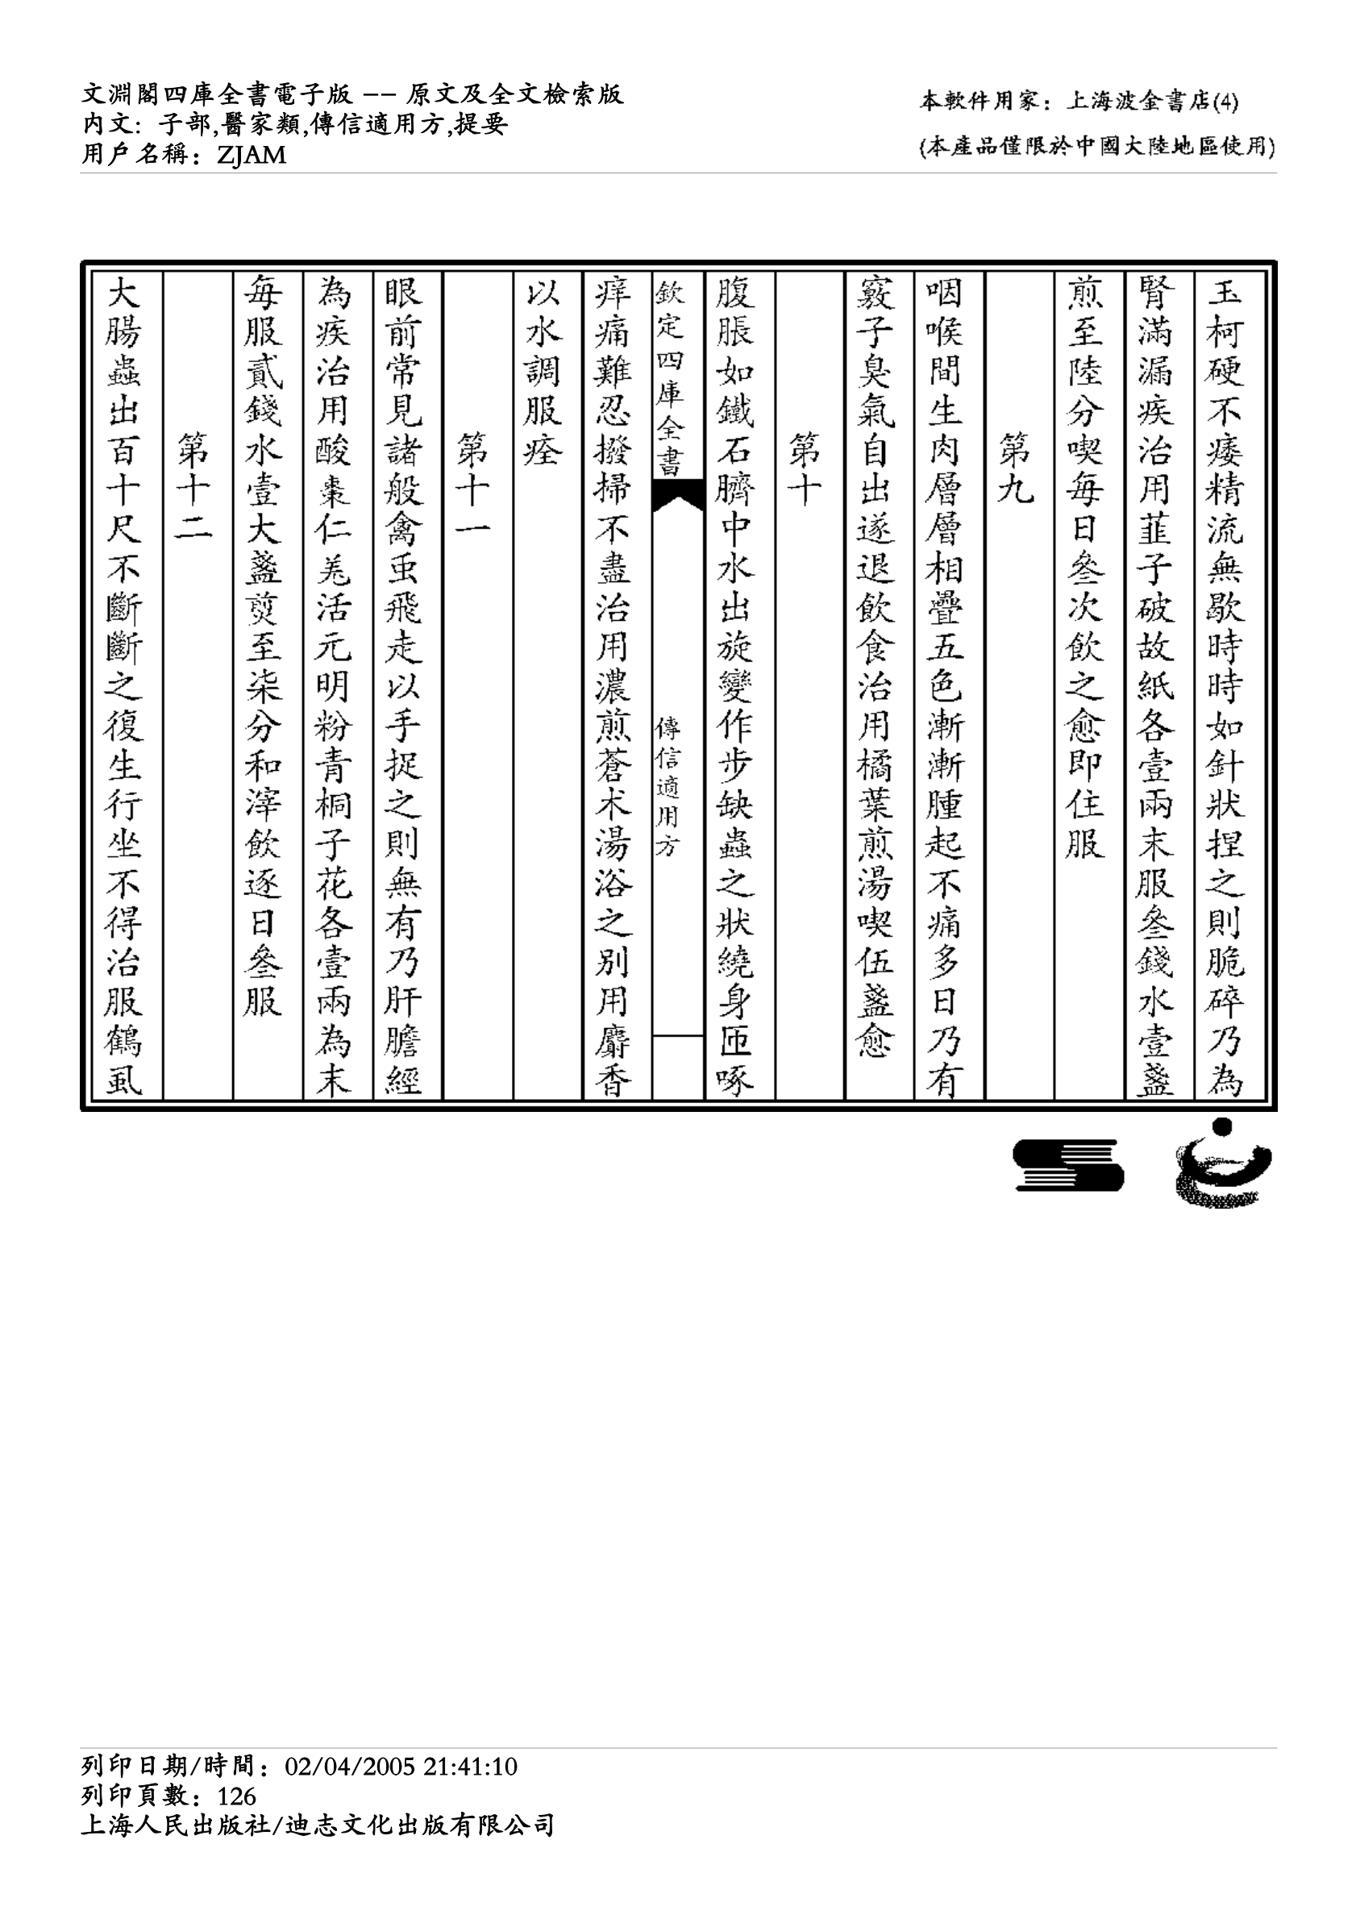 文淵閣四庫全書電子版 −− 原文及全文檢索版
內文: 子部,醫家類,傳信適用方,提要
用戶名稱：ZJAM
本軟件用家：上海波金書店(4)
(本產品僅限於中國大陸地區使用)
玉柯硬不痿精流無歇時時如針狀捏之則脆碎乃為
腎滿漏疾治用韮子破故紙各壹兩末服叄錢水壹盞
煎至陸分喫每日叄次飲之愈即住服
第九
咽喉間生肉層層相疊五色漸漸腫起不痛多日乃有
竅子臭氣自出遂退飲食治用橘葉煎湯喫伍盞愈
第十
腹脹如鐵石臍中水出旋變作步缺蟲之狀繞身匝啄
欽定四庫全書
傳信適用方
痒痛難忍撥掃不盡治用濃煎蒼术湯浴之別用麝香
以水調服痊
第十一
眼前常見諸般禽虫飛走以手捉之則無有乃肝膽經
為疾治用酸棗仁羗活元明粉青桐子花各壹兩為末
每服貳錢水壹大盞煎至柒分和滓飲逐日叄服
第十二
大腸蟲出百十尺不斷斷之復生行坐不得治服鶴虱
列印日期/時間：02/04/2005 21:41:10
列印頁數：126
上海人民出版社/迪志文化出版有限公司